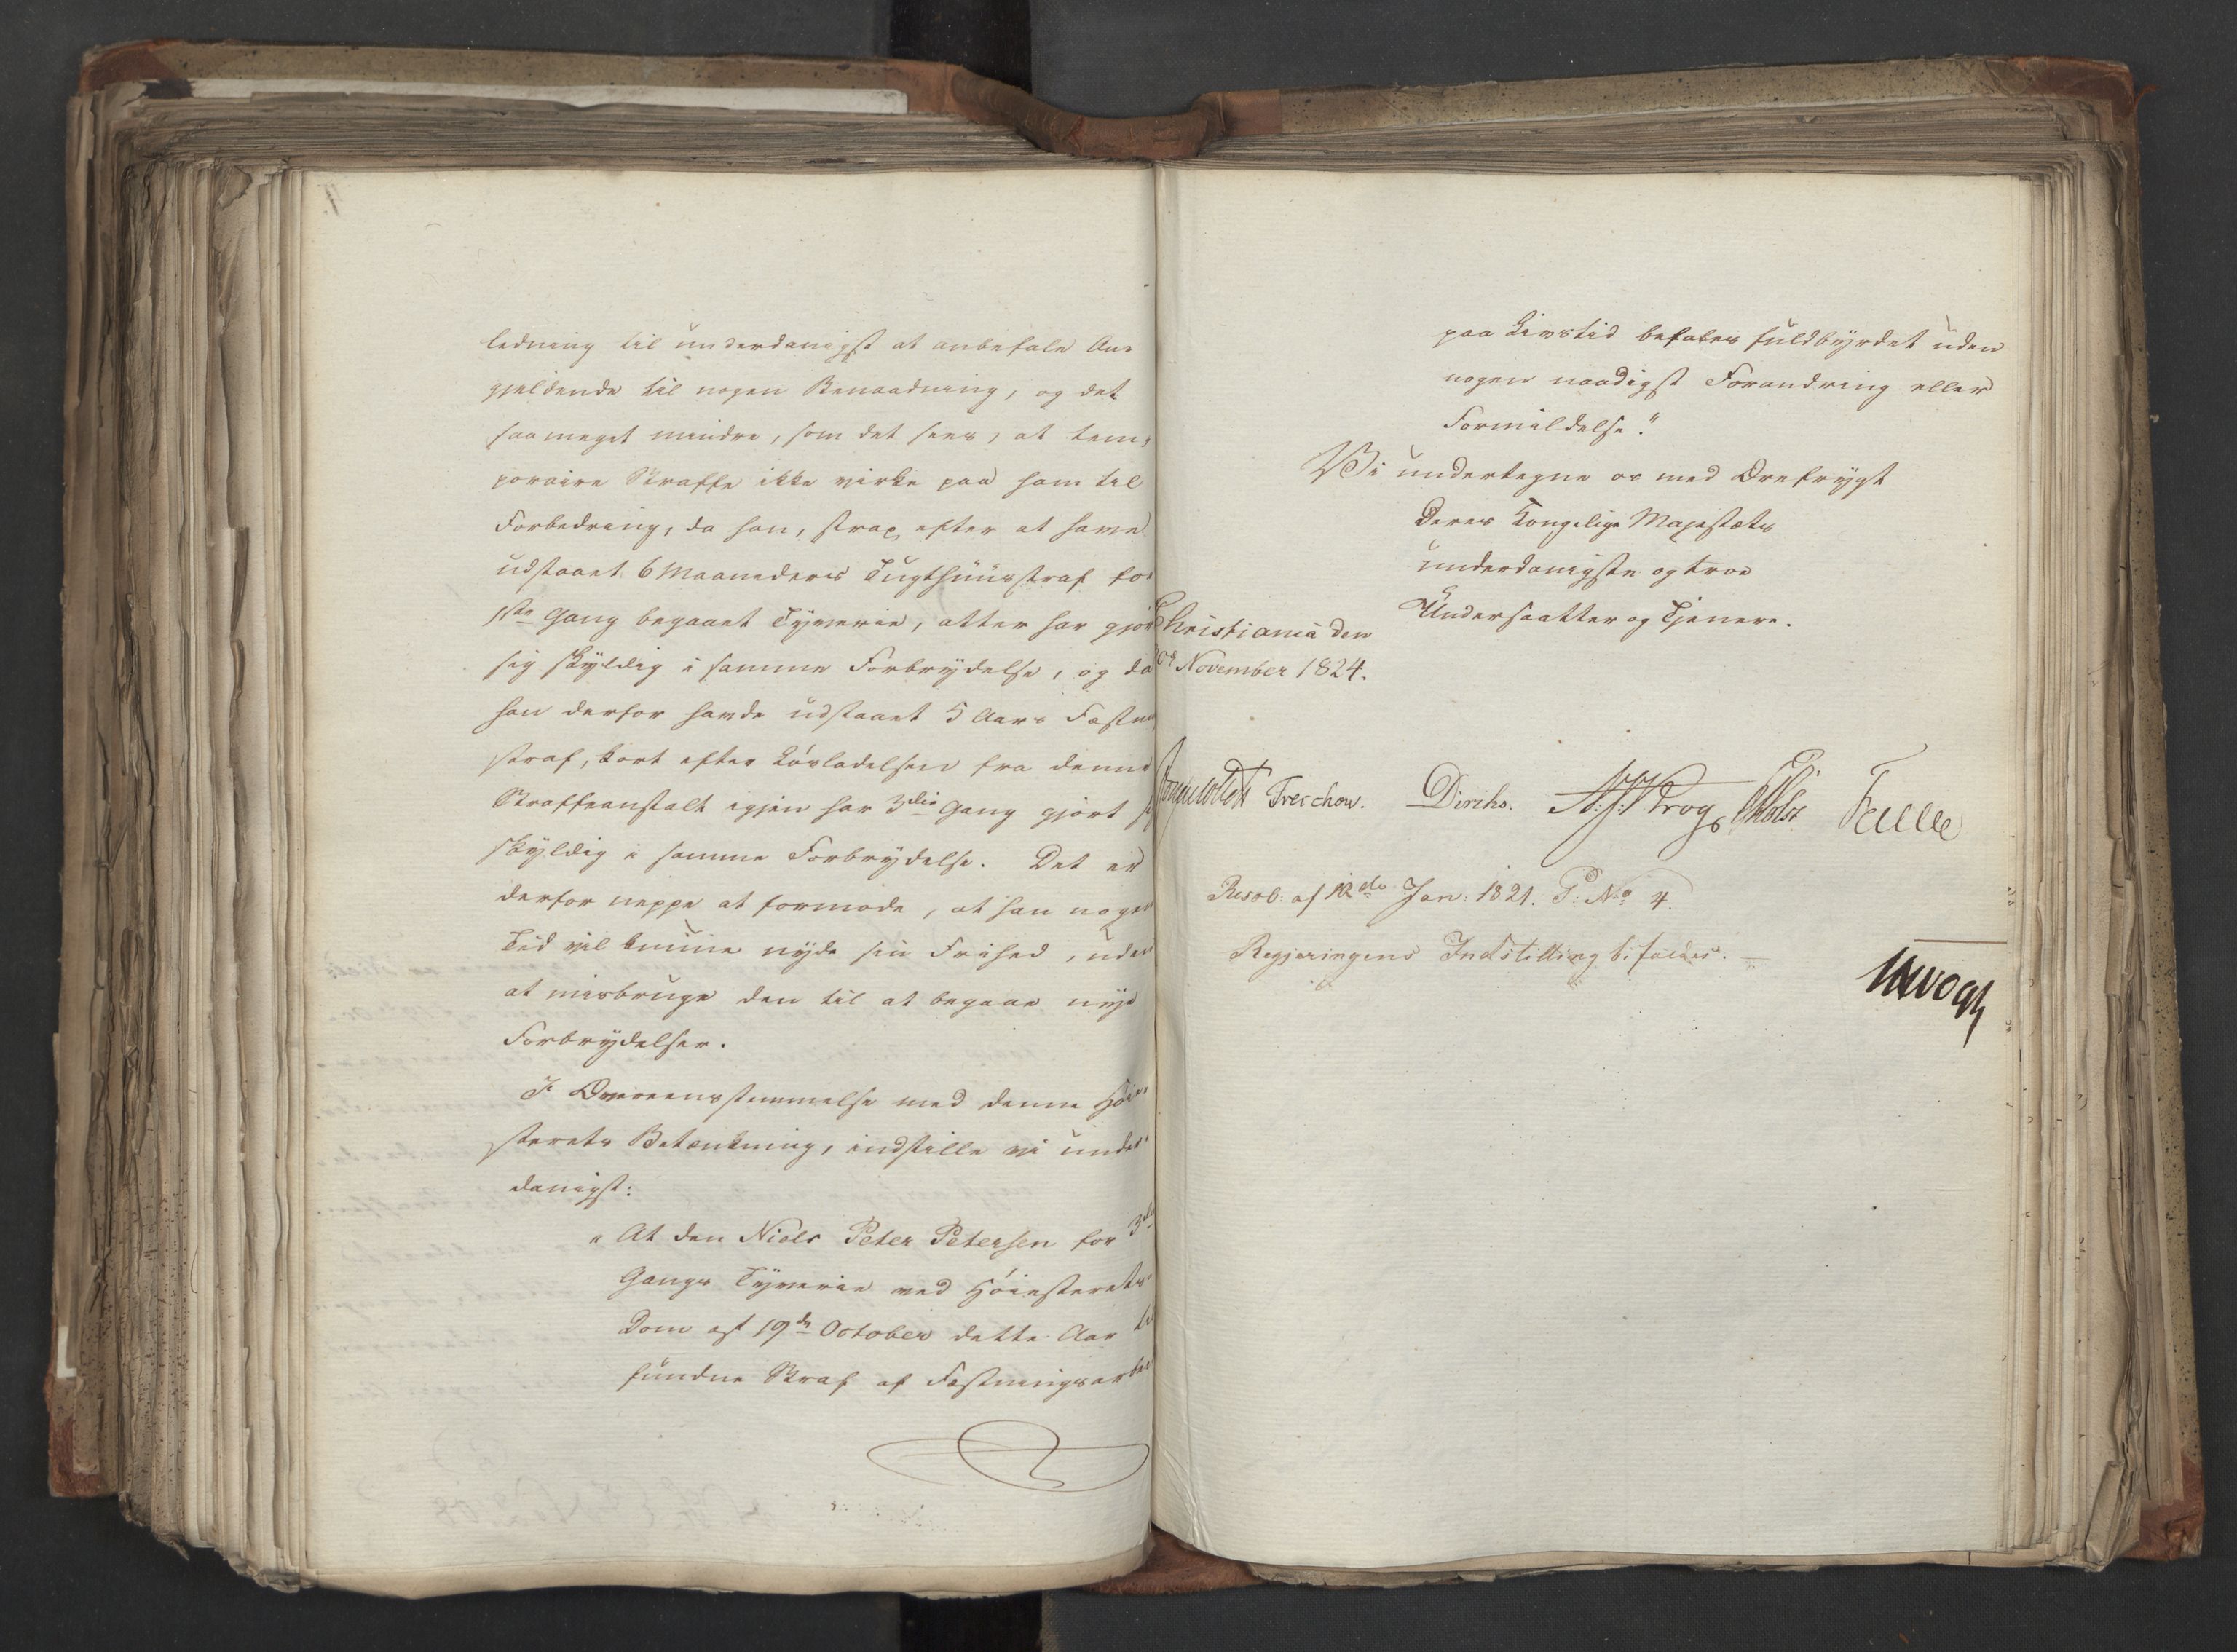 ledning til underdanigst at anbefale An-
gjeldende til nogen Benaadning, og det
saa meget mindre, som det sees, at tem-
poraire Straffe ikke virke paa ham til
Forbedring, da han, strax efter at have
udstaaet 6 Maaneders Tugthuusstraf for
1ste Gang begaaet Tyverie, atter har gjort
sig skyldig i samme Forbrydelse, og da
han derfor havde udstaaet 5 Aars Fæstn
straf, kort efter Løsladelsen fra denne
Straffeanstalt igjen har 3die Gang gjort
skyldig i samme Forbrydelse. Det er
derfor neppe at formode, at han nogen
Tid vil kunne nyde sin Frihed, uden
at misbruge den til at begaae nye
Forbrydelser.
I Overeensstemmelse med denne Høie-
sterets Betænkning, indstille vi under-
danigst:
"At den Niels Peter Petersen for 3die
Gangs Tyverie ved Høiesterets
Dom af 19de October dette Aar
fundne Straf af Fæstningsarbei
paa Livstid befales fuldbyrdet uden
nogen naadigst Forandring eller
Formildelse."
Vi undertegne os med Ærefrygt
Deres Kongelige Majestæts
underdanigste og troe
Undersaatter og Tjenere.
Christiania den
November 1824.
Treschow. Diriks. Krog Holst Fasting
Resol: af 12de Jan: 1821. P: No 4.
Regjeringens Indstilling bifaldes. —
Vogt